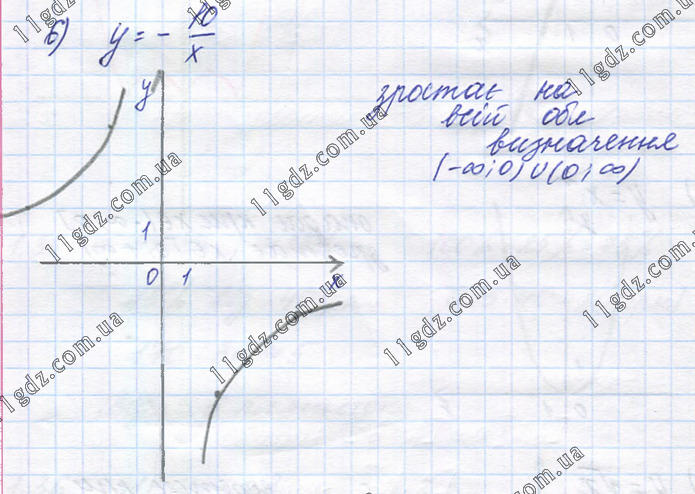 б) y = - 10/x
зростає на
всій обл
визначення
(-∞; 0) ∪ (0; ∞)
y
1
0 1 x
11gdz.com.ua
11gdz.com.ua
11gdz.com.ua
11gdz.com.ua
11gdz.com.ua
11gdz.com.ua
11gdz.com.ua
11gdz.com.ua
11gdz.com.ua
11gdz.com.ua
11gdz.com.ua